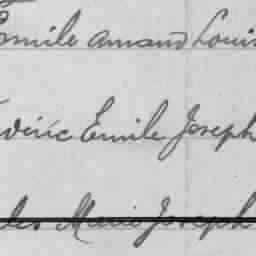 Emile Amand Louis
Emile Joseph
Marie Joseph